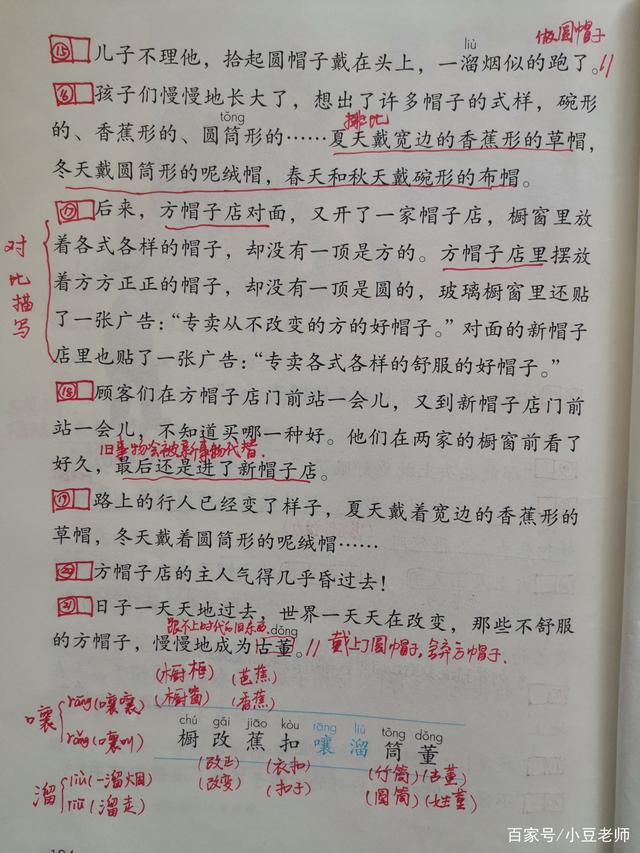 做圆帽子
liù
⑮儿子不理他，拾起圆帽子戴在头上，一溜烟似的跑了。//
⑯孩子们慢慢地长大了，想出了许多帽子的式样，碗形
tǒng
排比
的、香蕉形的、圆筒形的……夏天戴宽边的香蕉形的草帽，
冬天戴圆筒形的呢绒帽，春天和秋天戴碗形的布帽。
⑰后来，方帽子店对面，又开了一家帽子店，橱窗里放
着各式各样的帽子，却没有一顶是方的。方帽子店里摆放
着方方正正的帽子，却没有一顶是圆的，玻璃橱窗里还贴
了一张广告：“专卖从不改变的方的好帽子。”对面的新帽子
店里也贴了一张广告：“专卖各式各样的舒服的好帽子。”
对比描写
⑱顾客们在方帽子店门前站一会儿，又到新帽子店门前
站一会儿，不知道买哪一种好。他们在两家的橱窗前看了
旧事物会被新事物代替.
好久，最后还是进了新帽子店。
⑲路上的行人已经变了样子，夏天戴着宽边的香蕉形的
草帽，冬天戴着圆筒形的呢绒帽……
⑳方帽子店的主人气得几乎昏过去！
㉑日子一天天地过去，世界一天天在改变，那些不舒服
跟不上时代的旧东西.
dǒng
的方帽子，慢慢地成为古董。// 戴上了圆帽子，舍弃方帽子.
(橱柜) (芭蕉)
(橱窗) (香蕉)
嚷 rāng(嚷嚷)
rǎng(嚷叫)
chú gǎi jiāo kòu rāng liù tǒng dǒng
橱 改 蕉 扣 嚷 溜 筒 董
(改正) (衣扣) (竹筒) (古董)
(改变) (扣子) (圆筒) (姓董)
溜 liù(一溜烟)
liū(溜走)
百家号/小豆老师